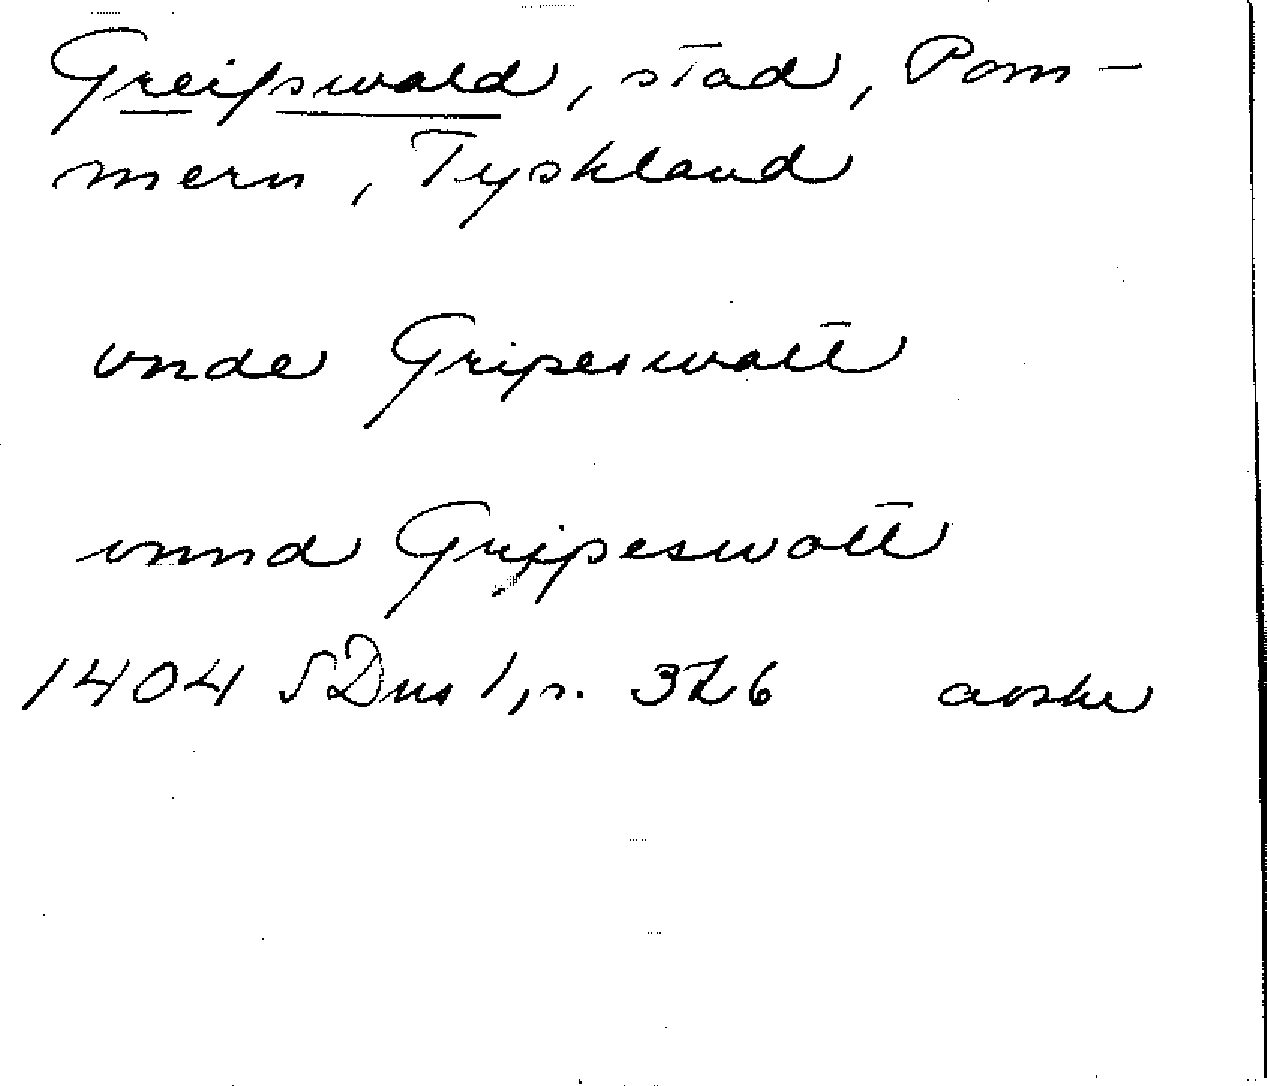 Greifswald, stad, Pom-
mern, Tyskland
vnde Gripeswolt
vnnd Gripeswolt
1404 SDns 1, s. 326 avskr